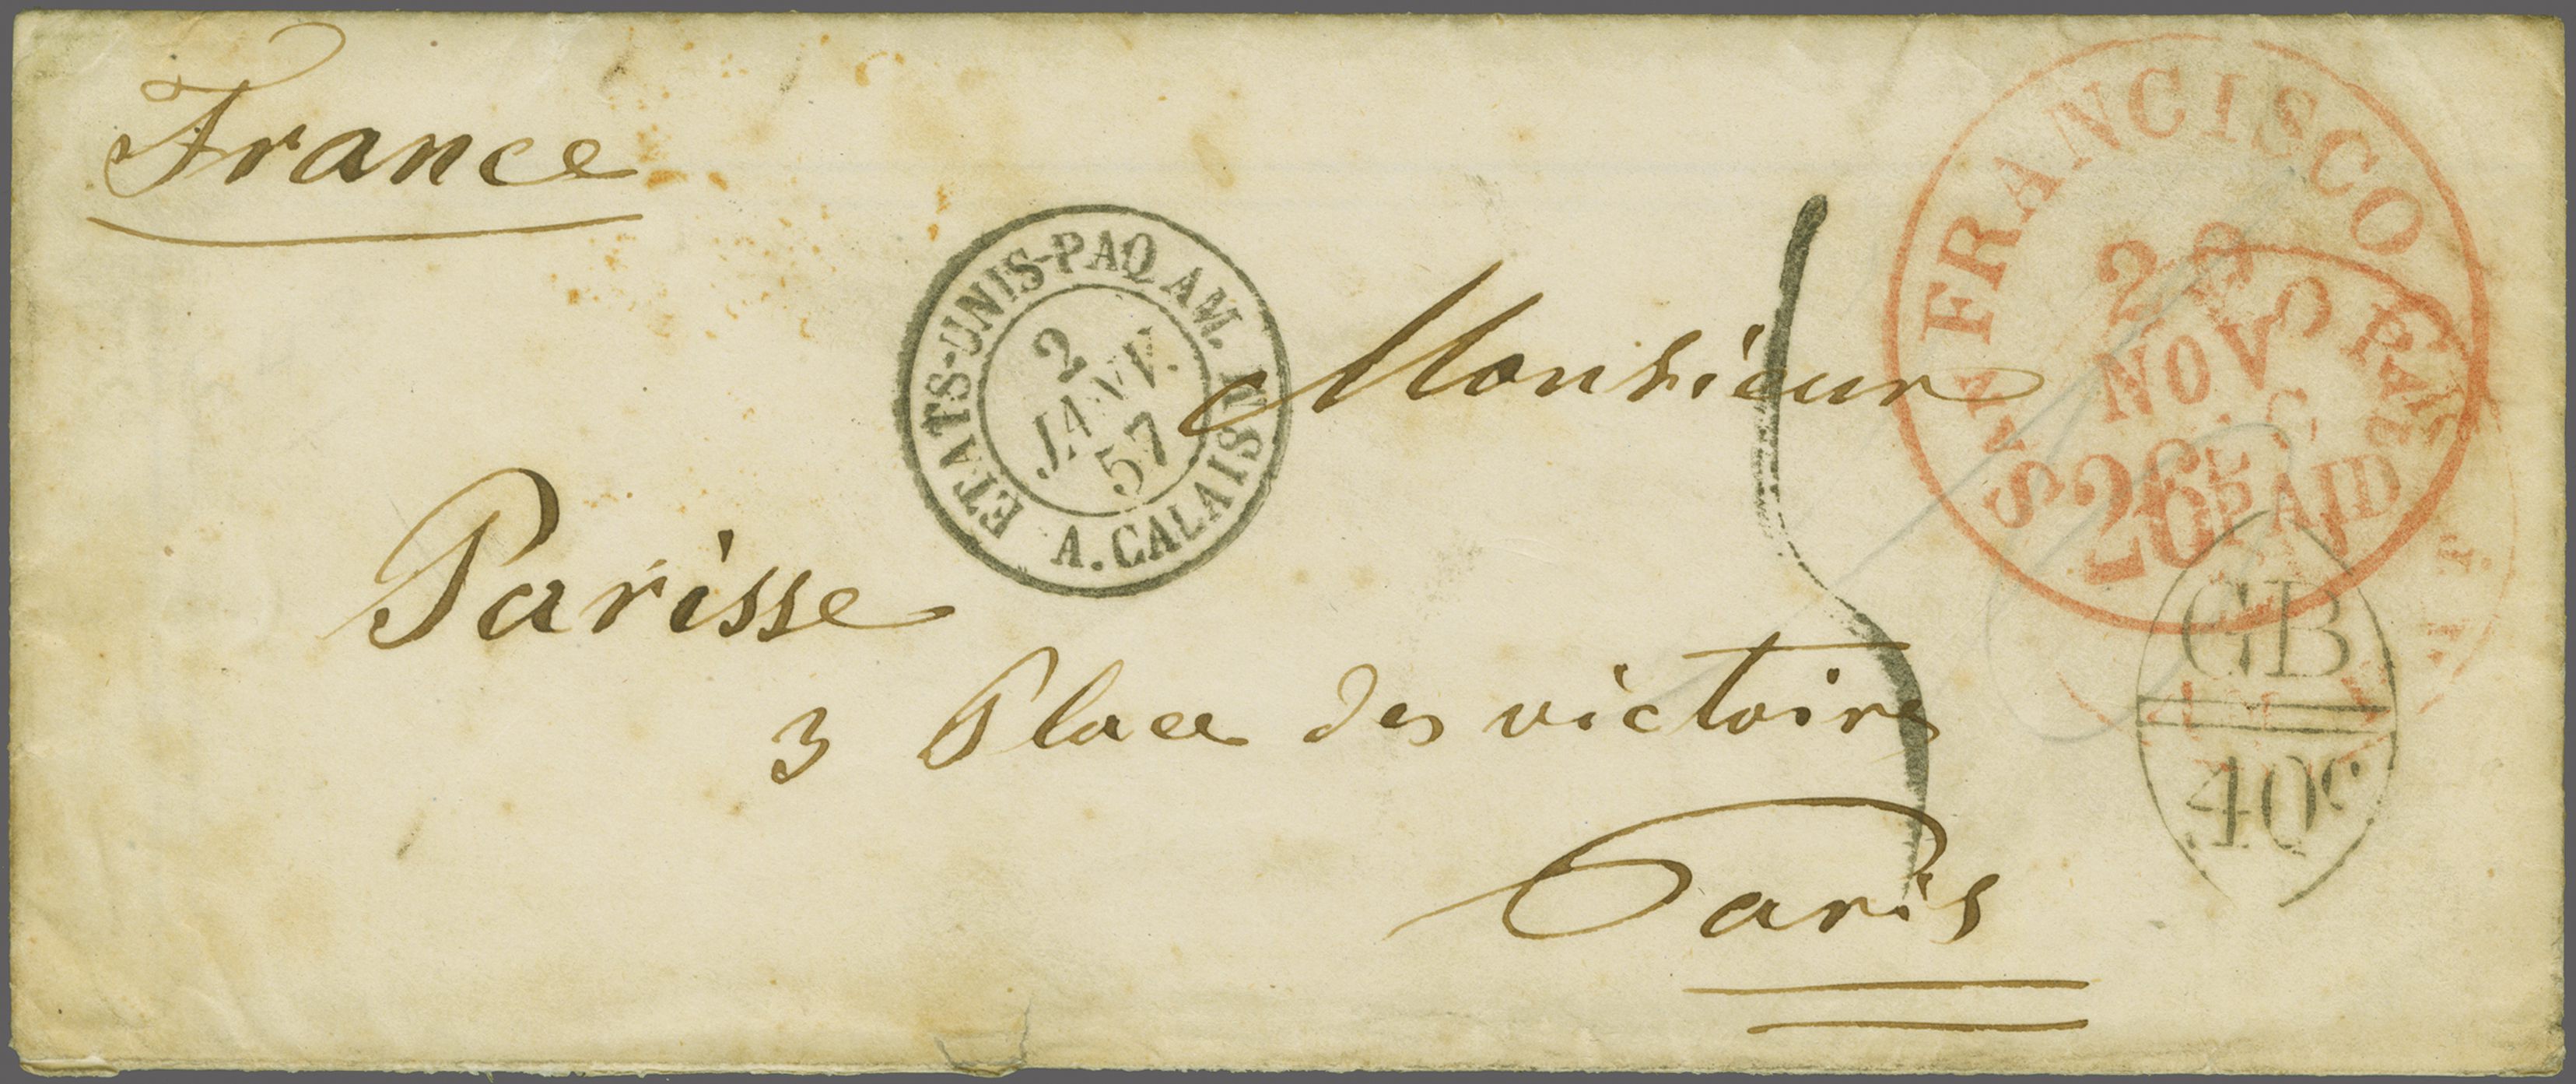 France
ETATS-UNIS-PAQ. AM.
2
JANV.
57
A. CALAIS
SAN FRANCISCO CAL
20
NOV
26
PAID
Monsieur
Parisse
3 Place des victoires
Paris
GB
40c